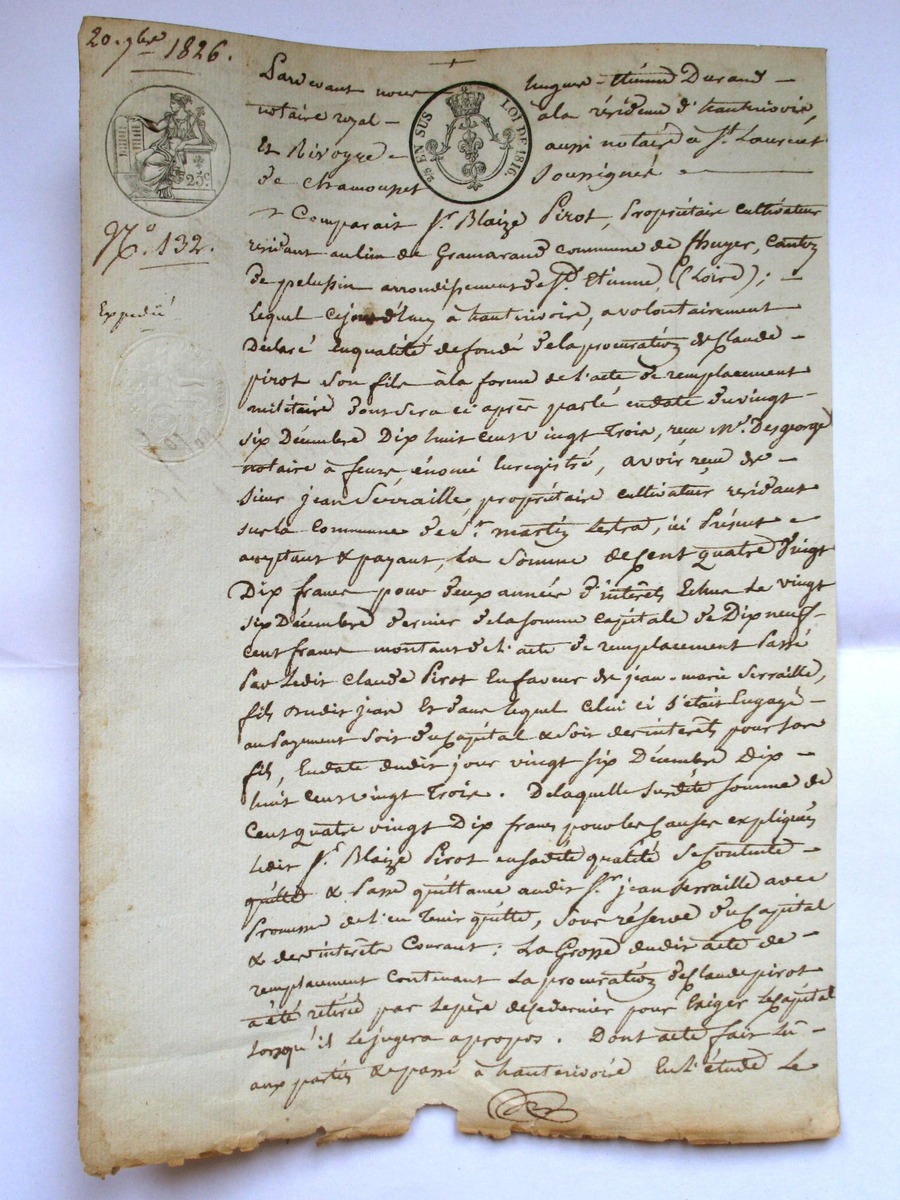 20. 9bre 1826.
25 EN SUS
LOI DE 1816.
25 c.
No. 132.
Expedié
Pardevant nous hugues-Etienne Durand -
notaire royal - à la résidence d'hauterivoire,
Et Rivoyre - aussi notaire à St. Laurent
de Chamousset Soussignés
Comparait Sr. Blaize Pirot, Propriétaire Cultivateur
résidant au lieu de Gramarand commune de, Canton
de pelussin arrondissement de St. Etienne, (Loire);
Lequel Cejourd'huy à hauterivoire, a volontairement
Déclaré En qualité de fondé de la procuration de Claude -
pirot Son fils à la forme de l'acte de remplacement
militaire dont Sera ci après parlé en date du vingt-
six Décembre Dix huit cent vingt Trois, reçu Me. Desgeorge
notaire à feurs, énoncé Enregistré, avoir reçu de -
Sieur jean Serraille, propriétaire cultivateur résidant
sur la Commune de St. martin Lestra, ici Présent -
acceptant & payant, La Somme de Cent quatre vingt
Dix francs pour deux années d'intérêts Echus Le vingt
six Décembre dernier de la somme Capitale de Dix neuf-
cent francs montant de l'acte de remplacement Passé
Par Ledit Claude Pirot En faveur de jean-marie Serraille,
fils dudit jean Et dans lequel Celui ci s'était Engagé -
au payement Soit du Capital & Soit des intérêts pour Son
fils, En date dudit jour vingt six Décembre Dix -
huit Cent vingt Trois. De laquelle Susdite Somme de
Cent quatre vingt Dix francs pour les Causes expliquées
Ledit Sr. Blaize Pirot en sadite qualité Se Contente -
quitte & Passe quittance audit Sr. jean Serraille avec
Promesse de l'en Tenir quitte, Sous réserve du Capital
& des intérêts Courant: La Grosse dudit acte de -
remplacement Contenant La procuration de Claude pirot
a été retirée par Le père de ce dernier pour Exiger Le Capital
Lorsqu'il Le jugera apropos. Dont acte fait Lu -
aux parties & passé à hauterivoire En l'étude Le